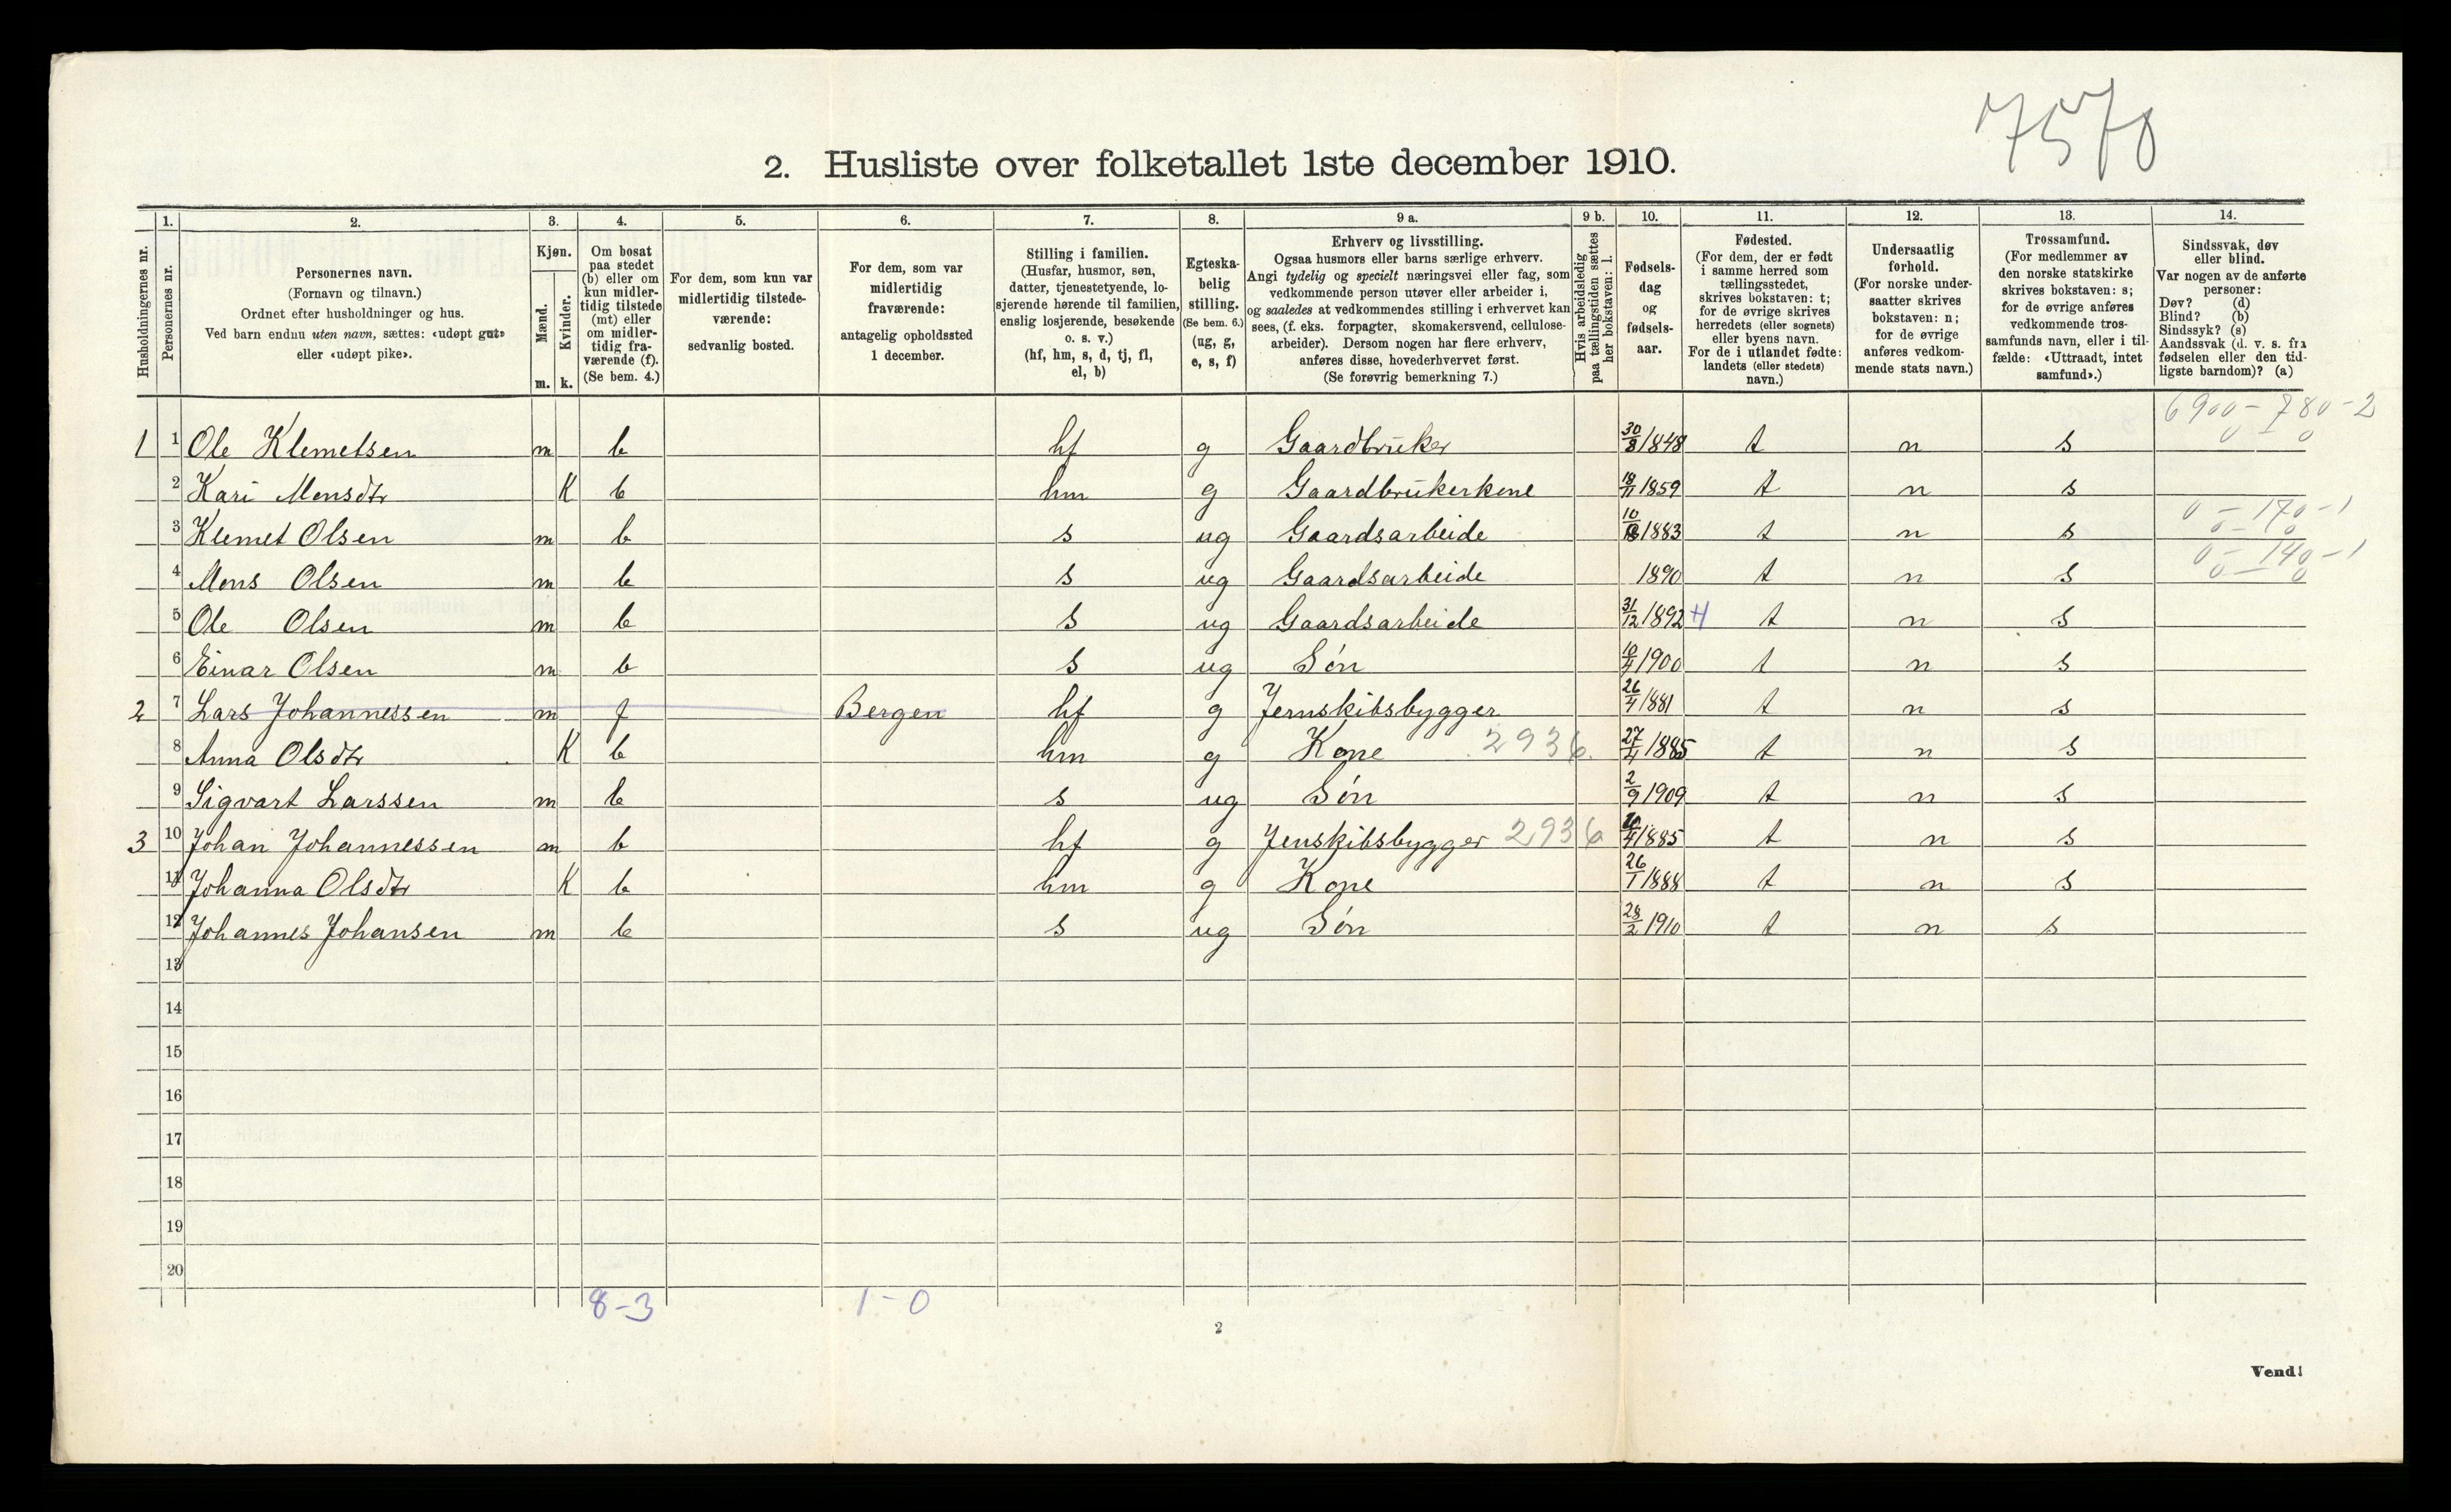 7570
2. Husliste over folketallet 1ste december 1910.
Husholdningernes nr.
1. Personernes nr.
2. Personernes navn.
(Fornavn og tilnavn.)
Ordnet efter husholdninger og hus.
Ved barn endnu uten navn, sættes: «udøpt gut»
eller «udøpt pike».
3. Kjøn.
Mænd. m.
Kvinder. k.
4. Om bosat
paa stedet
(b) eller om
kun midler-
tidig tilstede
(mt) eller
om midler-
tidig fra-
værende (f).
(Se bem. 4.)
5. For dem, som kun var
midlertidig tilstede-
værende:
sedvanlig bosted.
6. For dem, som var
midlertidig
fraværende:
antagelig opholdssted
1 december.
7. Stilling i familien.
(Husfar, husmor, søn,
datter, tjenestetyende, lo-
sjerende hørende til familien,
enslig losjerende, besøkende
o. s. v.)
(hf, hm, s, d, tj, fl,
el, b)
8. Egteska-
belig
stilling.
(Se bem. 6.)
(ug, g,
e, s, f)
9 a. Erhverv og livsstilling.
Ogsaa husmors eller barns særlige erhverv.
Angi tydelig og specielt næringsvei eller fag, som
vedkommende person utøver eller arbeider i,
og saaledes at vedkommendes stilling i erhvervet kan
sees, (f. eks. forpagter, skomakersvend, cellulose-
arbeider). Dersom nogen har flere erhverv,
anføres disse, hovederhvervet først.
(Se forøvrig bemerkning 7.)
9 b. Hvis arbeidsledig
paa tællingstiden sættes
her bokstaven: l.
10. Fødsels-
dag
og
fødsels-
aar.
11. Fødested.
(For dem, der er født
i samme herred som
tællingsstedet,
skrives bokstaven: t;
for de øvrige skrives
herredets (eller sognets)
eller byens navn.
For de i utlandet fødte:
landets (eller stedets)
navn.)
12. Undersaatlig
forhold.
(For norske under-
saatter skrives
bokstaven: n;
for de øvrige
anføres vedkom-
mende stats navn.)
13. Trossamfund.
(For medlemmer av
den norske statskirke
skrives bokstaven: s;
for de øvrige anføres
vedkommende tros-
samfunds navn, eller i til-
fælde: «Uttraadt, intet
samfund».)
14. Sindssvak, døv
eller blind.
Var nogen av de anførte
personer:
Døv? (d)
Blind? (b)
Sindssyk? (s)
Aandssvak (d. v. s. fra
fødselen eller den tid-
ligste barndom)? (a)
6900 - 780 - 2
0 - 0
1 1 Ole Klemetsen m b hf g Gaardbruker 30/8 1848 t n s
2 Kari Monsdtr K b hm g Gaardbrukerkone 18/11 1859 t n s
0 - 170 - 1
0 - 0
3 Klemet Olsen m b s ug Gaardsarbeide 1883 t n s
0 - 140 - 1
0 - 0
4 Mons Olsen m b s ug Gaardsarbeide 1890 t n s
5 Ole Olsen m b s ug Gaardsarbeide 31/12 1892 4 t n s
6 Einar Olsen m b s ug Søn 10/4 1900 t n s
2 7 Lars Johannessen m f Bergen hf g Jernskibsbygger 26/4 1881 t n s
8 Anna Olsdtr K b hm g Kone 2936. 27/4 1885 t n s
9 Sigvart Larssen m b s ug Søn 2/9 1909 t n s
3 10 Johan Johannessen m b hf g Jenskibsbygger 2936 1885 t n s
11 Johanna Olsdtr K b hm g Kone 26/1 1888 t n s
12 Johannes Johansen m b s ug Søn 28/2 1910 t n s
13
14
15
16
17
18
19
20
8 - 3 1 - 0
2
Vend!